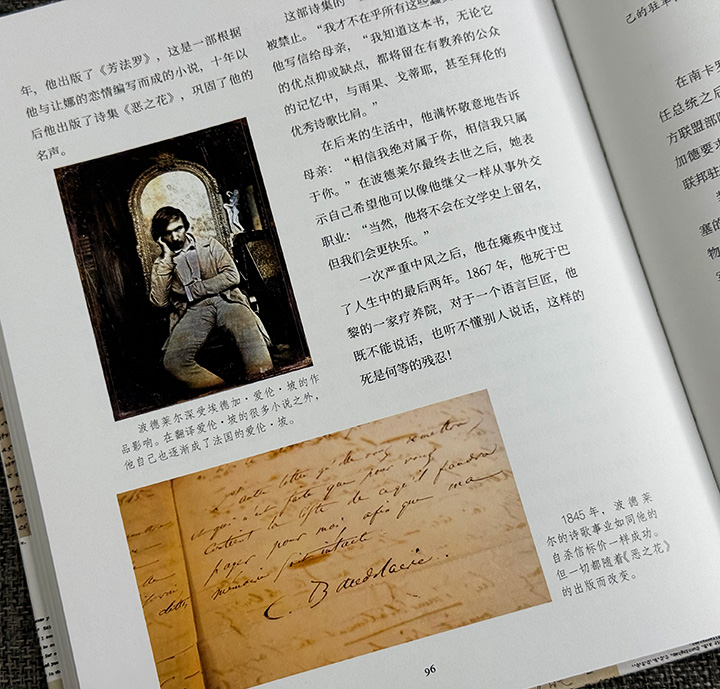 年，他出版了《芳法罗》，这是一部根据
他与让娜的恋情编写而成的小说，十年以
后他出版了诗集《恶之花》，巩固了他的
名声。
波德莱尔深受埃德加·爱伦·坡的作
品影响。在翻译爱伦·坡的很多小说之外，
他自己也逐渐成了法国的爱伦·坡。
这部诗集的
被禁止。“我才不在乎所有这些蠢
他写信给母亲，“我知道这本书，无论它
的优点抑或缺点，都将留在有教养的公众
的记忆中，与雨果、戈蒂耶，甚至拜伦的
优秀诗歌比肩。”
在后来的生活中，他满怀敬意地告诉
母亲：“相信我绝对属于你，相信我只属
于你。”在波德莱尔最终去世之后，她表
示自己希望他可以像他继父一样从事外交
职业：“当然，他将不会在文学史上留名，
但我们会更快乐。”
一次严重中风之后，他在瘫痪中度过
了人生中的最后两年。1867 年，他死于巴
黎的一家疗养院，对于一个语言巨匠，他
既不能说话，也听不懂别人说话，这样的
死是何等的残忍！
cette lettre qu'elle vous remettra,
et qui n'est faite que pour vous
contient la liste de ce qu'il faudra
payer pour moi, afin que ma
mémoire soit intacte.
C. Baudelaire.
1845 年，波德莱
尔的诗歌事业如同他的
自杀信标价一样成功。
但一切都随着《恶之花》
的出版而改变。
96
己的驻军
在南卡罗
任总统之后
方联盟部队
加德要求
联邦驻
塞的
物